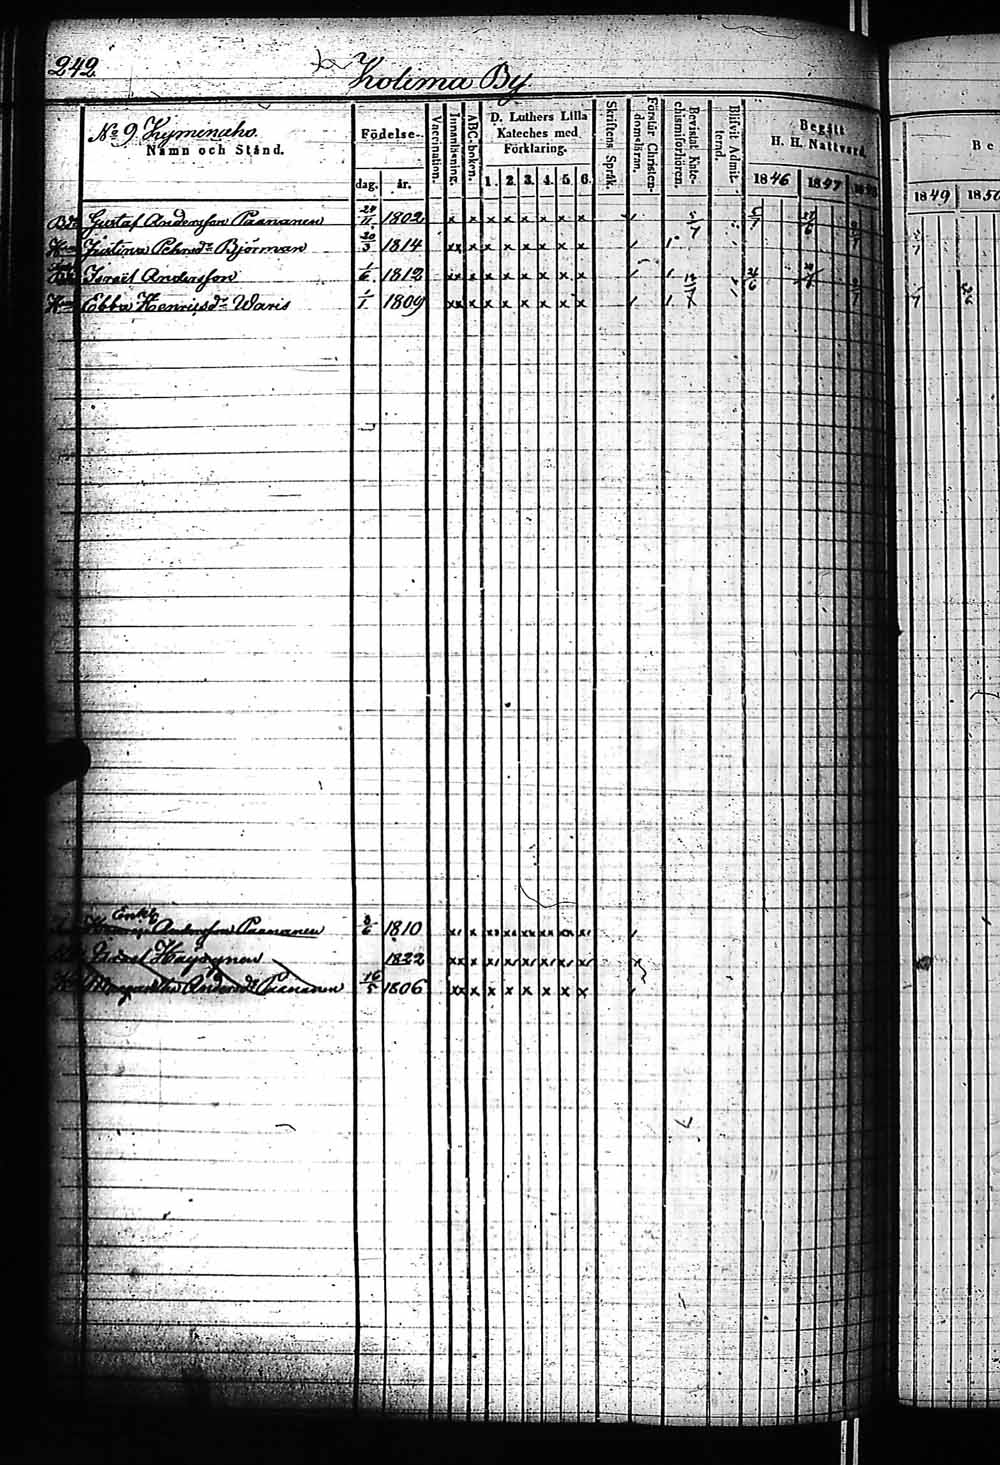 242
Kolima By
No 9. Kyminaho.
Namn och Stånd.
Födelse-
dag. år.
Vaccination.
Innanläsning.
ABC-boken.
D. Luthers Lilla
Kateches med
Förklaring.
1. 2. 3. 4. 5. 6.
Skriftens Språk.
Förstår Christen-
domsläran.
Bevistat Kate-
chismiförhören.
Blifvit Admit-
terad.
Begått
H. H. Nattvard.
1846 1847
Be
1849 1850
Bde Gustaf Andersson Paananen 1802 x x x x x x x x
Hu Justina Pehrsdr Björman 20/3 1814 xx x x x x x x x
Israel Andersson 1/6 1812 xx x x x x x x x
Hu Ebba Henricsdr Waris 1/1 1809 xx x x x x x x x
Enkl
Andersson Paananen 3/6 1810
Israel Häyrynen 1822
Hu Margaretha Andersdr Paananen 16/5 1806 xx x x x x x x x